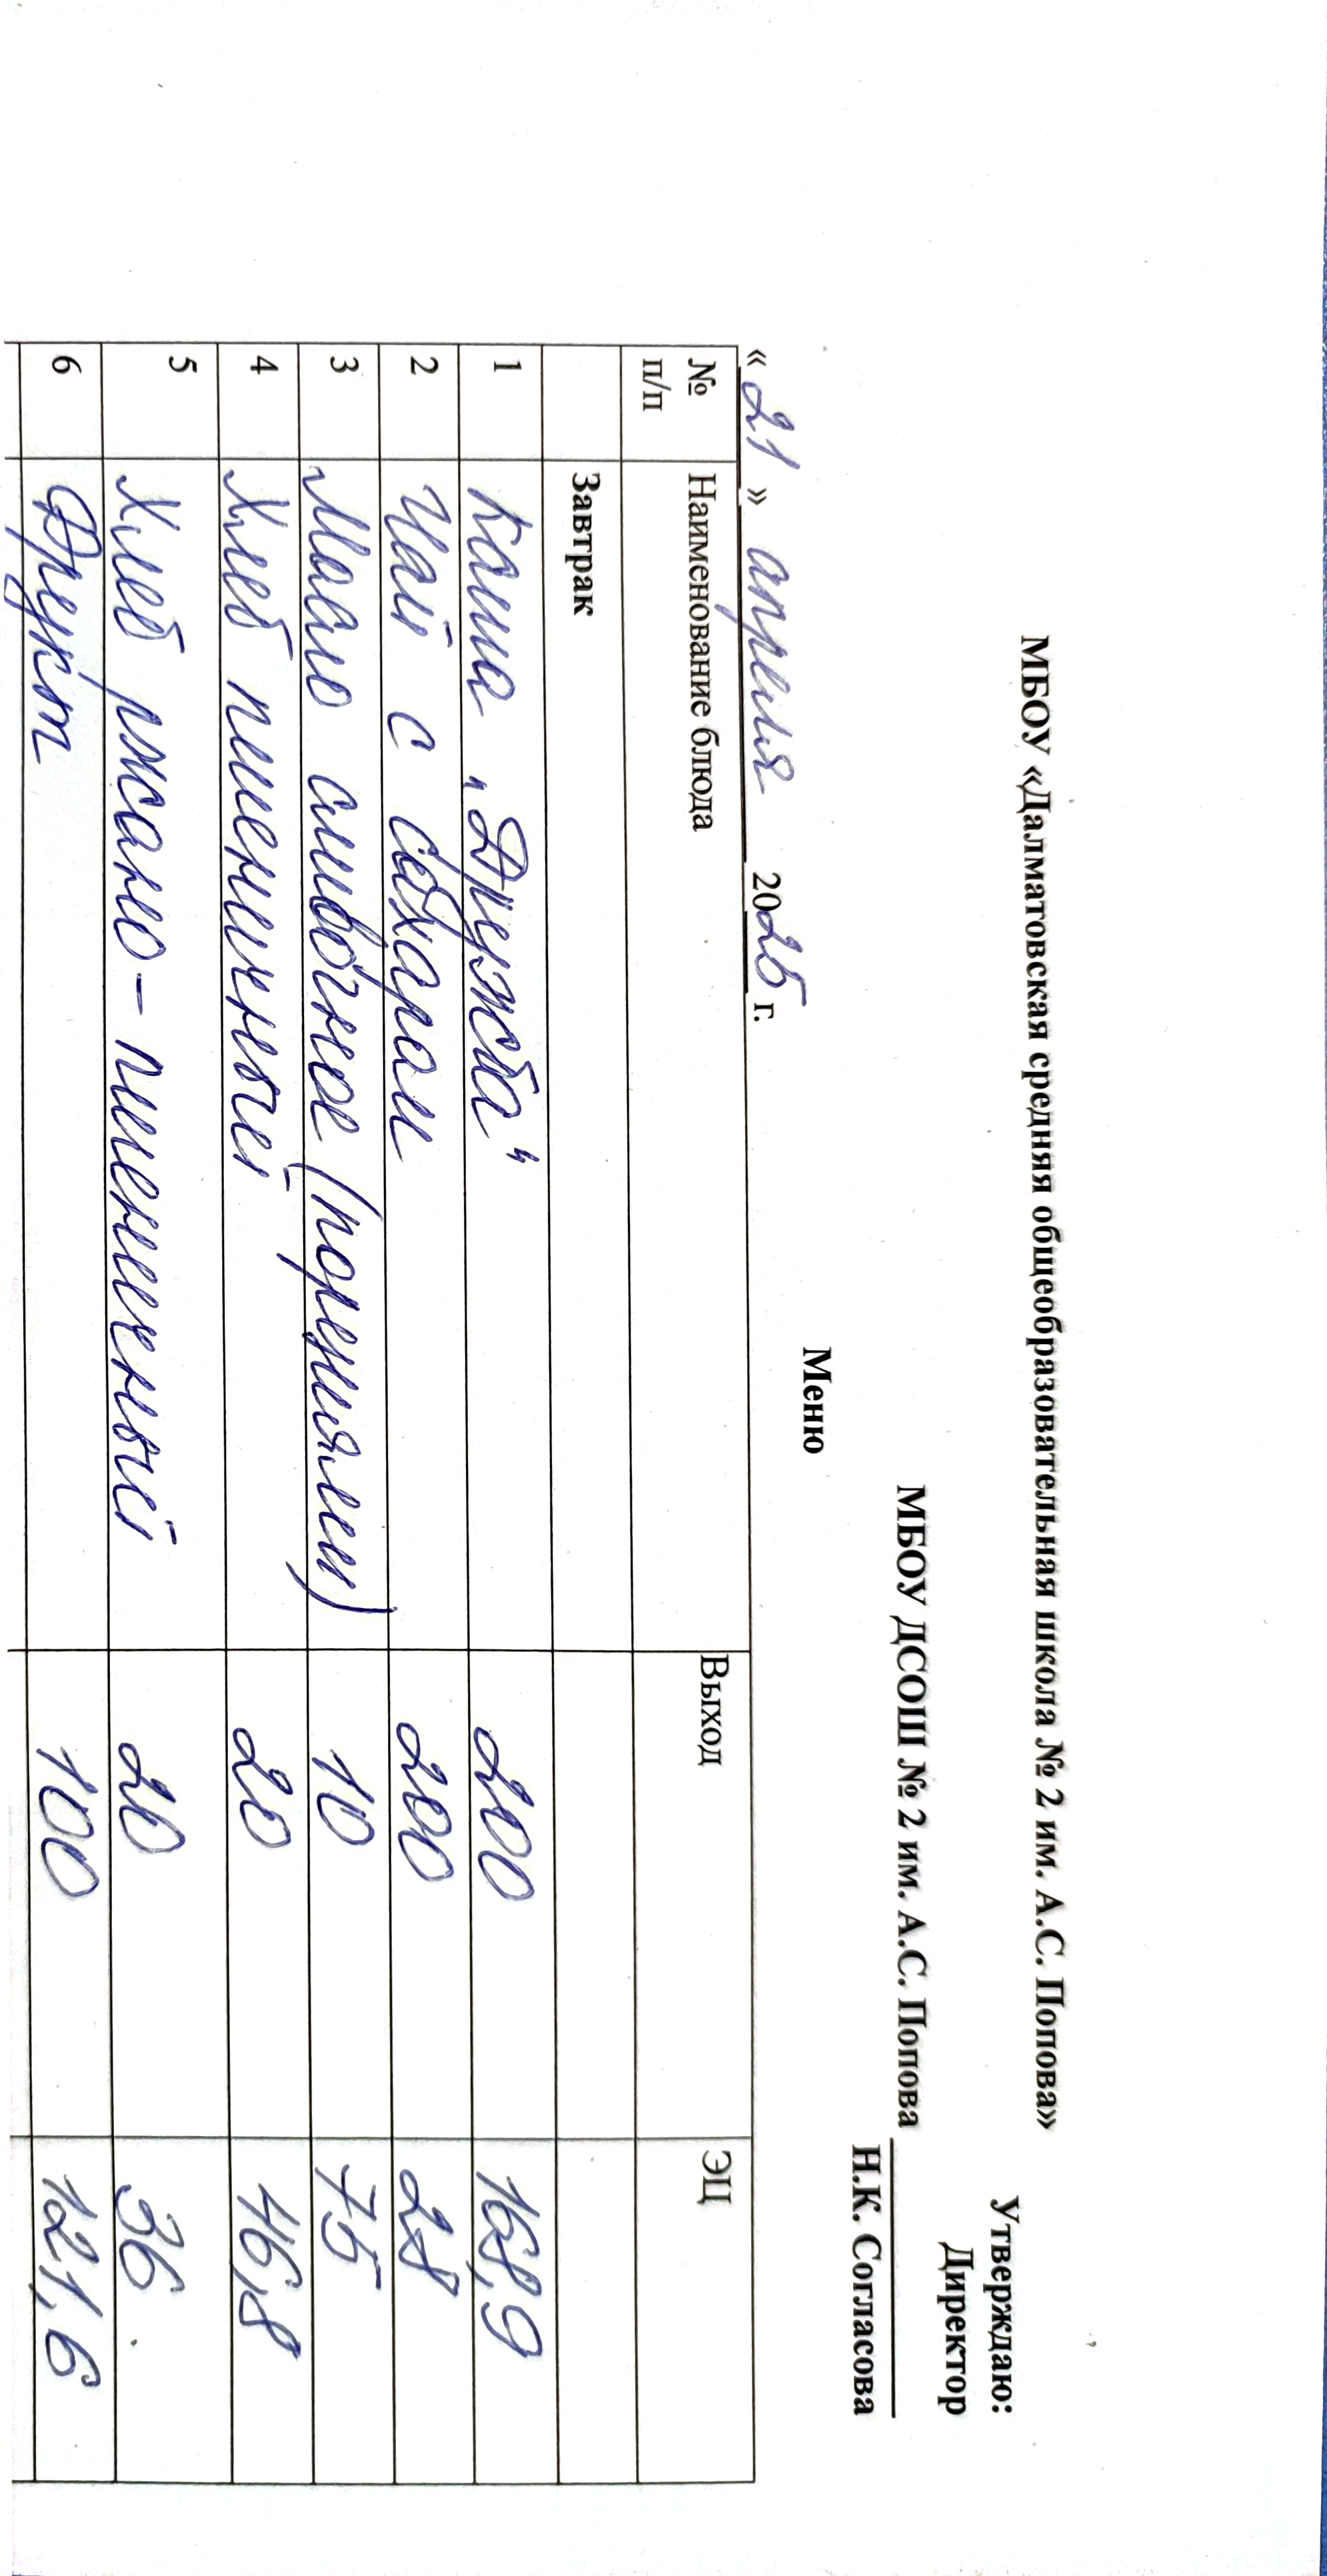 МБОУ «Далматовская средняя общеобразовательная школа № 2 им. А.С. Попова»
Утверждаю:
Директор
МБОУ ДСОШ № 2 им. А.С. Попова
Н.К. Согласова
Меню
« 21 » апреля 2025 г.
№ п/п Наименование блюда Выход ЭЦ
Завтрак
1 Каша „Дружба“ 200 168,9
2 Чай с сахаром 200 28
3 Масло сливочное (порциями) 10 75
4 Хлеб пшеничный 20 46,8
5 Хлеб ржано-пшеничный 20 36
6 Фрукт 100 121,6